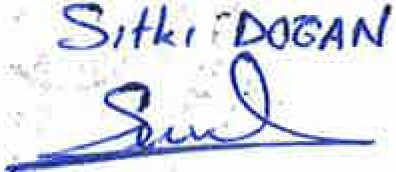 Sıtkı DOGAN